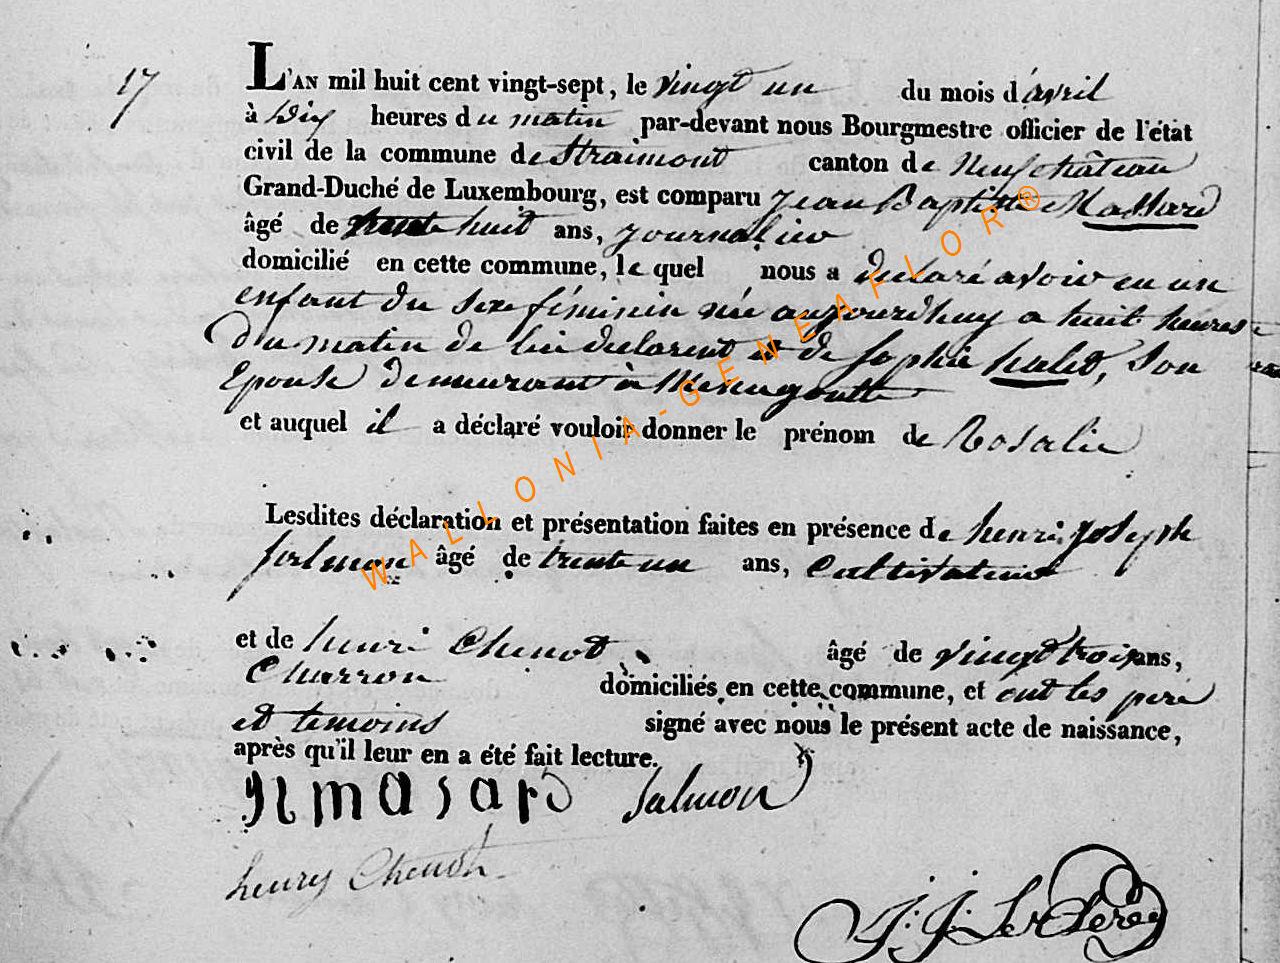 17
L'AN mil huit cent vingt-sept, le vingt un du mois d'avril
à Dix heures du matin par-devant nous Bourgmestre officier de l'état
civil de la commune de Straimont canton de Neufchâteau
Grand-Duché de Luxembourg, est comparu Jean Baptiste Massard
âgé de huit ans, journalier
domicilié en cette commune, lequel nous a declaré avoir eu un
enfant du sexe féminin née aujourdhuy a huit heures
du matin de lui declarent et de Sophie halet, Son
Epouse demeurant à Menugoutte
et auquel il a déclaré vouloir donner le prénom de Rosalie
Lesdites déclaration et présentation faites en présence de henri Joseph
Salmon âgé de trente un ans, Cultivateur
et de henri Chenot âgé de vingt trois ans,
Charron domiciliés en cette commune, et ont les pere
et temoins signé avec nous le présent acte de naissance,
après qu'il leur en a été fait lecture.
masard Salmon
henry Chenot
J. J. Le Clerc
WALLONIA-GENEAFLOR®